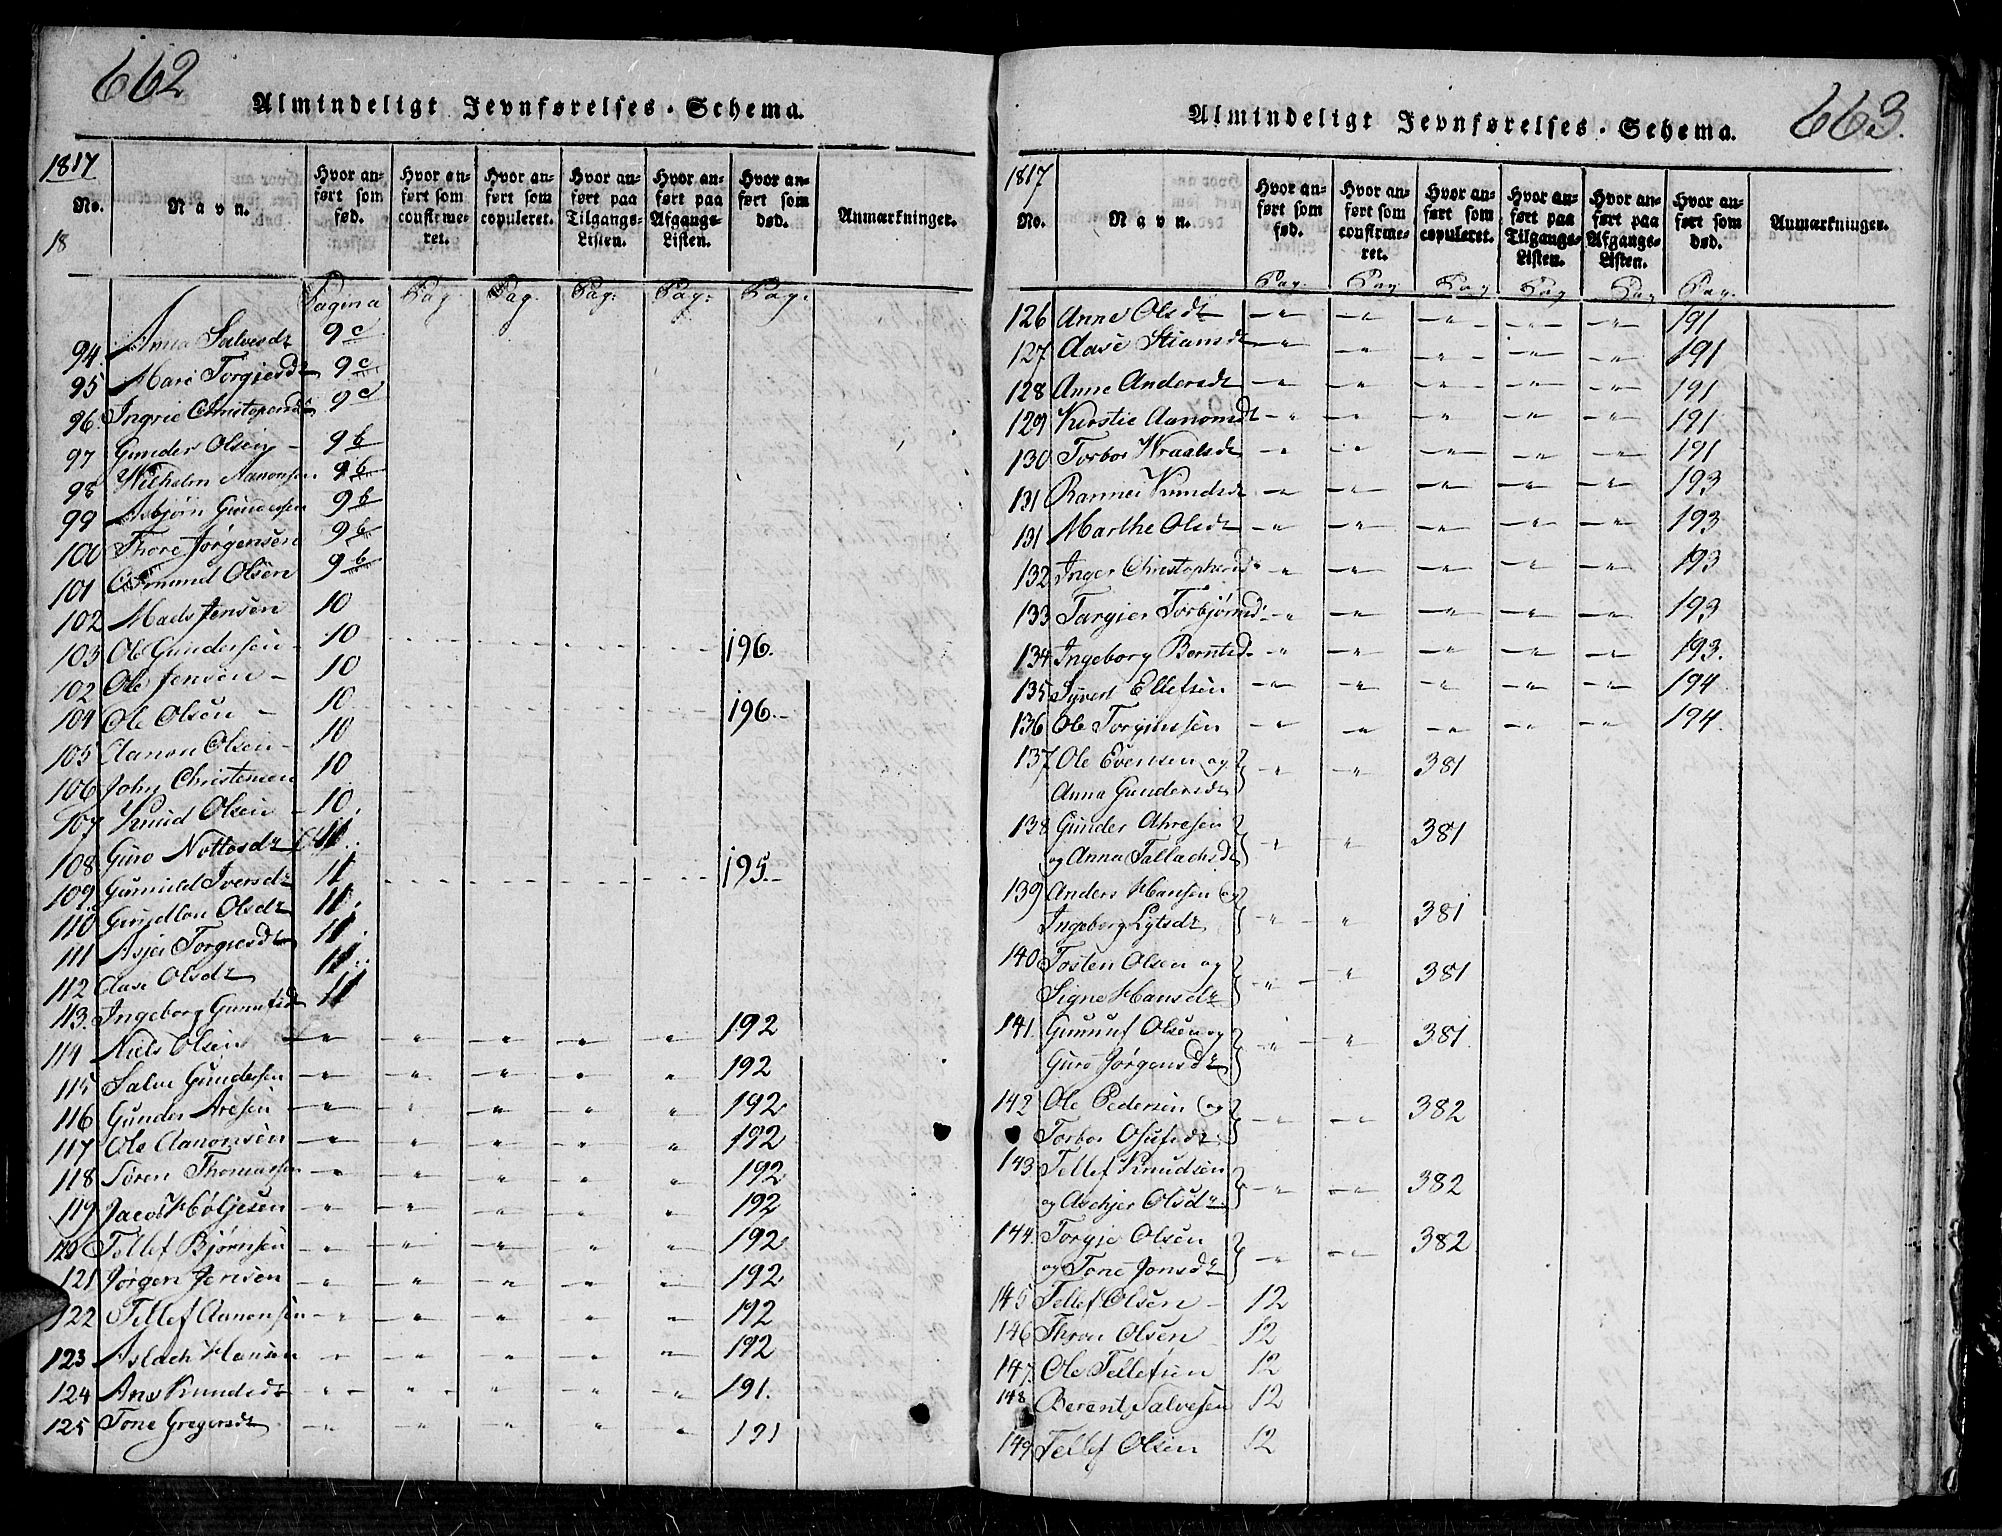 662
Almindeligt Jevnførelses-Schema.
1817
No.
18
Navn.
Hvor anført som fød.
Hvor anført som confirmeret.
Hvor anført som copuleret.
Hvor anført paa Tilgangs-Listen.
Hvor anført paa Afgangs-Listen.
Hvor anført som død.
Anmærkninger.
Pagina Pag. Pag. Pag: Pag: Pag:
94. Anna Salvesdr 9 c
95 Mari Torgiesdr 9 c
96. Ingrie Christopersdr 9 c
97 Gunder Olsen - 9 b
98 Wilhelm Aanonsen 9 b
99 Asbjørn Gundersen 9 b
100 Thore Jørgensen 9 b
101 Osmund Olsen 9 b
102 Mads Jensen 10
103 Ole Gundersen - 10 196.
102 Ole Jensen - 10
104 Ole Olsen - 10 196.
105 Aanon Olsen - 10
106 John Christensen 10
107 Knud Olsen - 10.
108 Guro Nottosdr 11.
109. Gunnild Iversdr 11 195.
110 Gundlou Olsdr 11.
111 Asjer Torgiesdr 11.
112 Aase Olsdr 11.
113. Ingeborg Gunufsdr 11
114 Niels Olsen - " " " " " 192
115 Salve Gundersen - " " " " " 192
116 Gunder Aresen - " " " " " 192
117 Ole Aanonsen - " " " " " 192
118 Søren Thomassen " " " " " 192
119 Jacob Høljesen " " " " " 192
120 Tellef Bjørnsen " " " " " 192
121 Jørgen Jensen " " " " " 192
122 Tellef Aanonsen " " " " " 192
123 Aslach Hansen " " " " " 192
124 Ane Knudsdr " " " " " 191.
125 Tone Gregersdr " " " " " 191
663.
Almindeligt Jevnførelses-Schema.
1817
No.
Navn.
Hvor anført som fød.
Hvor anført som confirmeret.
Hvor anført som copuleret.
Hvor anført paa Tilgangs-Listen.
Hvor anført paa Afgangs-Listen.
Hvor anført som død.
Anmærkninger.
Pag. Pag Pag Pag Pag Pag.
126 Anne Olsdr " " " " " 191
127 Aase Stiansdr " " " " " 191
128 Anne Andersdr " " " " " 191
129 Kirstie Aanonsdr " " " " " 191
130 Torbor Wraalsdr " " " " " 191
131 Rannei Knudsdr " " " " " 193
131 Marthe Olsdr " " " " " 193
132 Inger Christophersd. " " " " " 193
133 Targier Torbjørnsd. " " " " " 193
134 Ingeborg Berntsd. " " " " " 193.
135 Syvert Ellefsen " " " " " 194
136 Ole Torgiussen " " " " " 194
137 Ole Evensen og " " 381
Anna Gundersdr
138 Gunder Ahresen " " 381
og Anna Tallachsdr
139 Anders Hansen og " " 381
Ingeborg Lylsdr
140 Tosten Olsen og " " 381
Signe Hansdr
141. Gunuf Olsen og " " 381
Guro Jørgensdr
142 Ole Pedersen og " " 382
Torbor Osufsdr
143 Tellef Knudsen " " 382
og Aschjer Olsdr
144. Torgie Olsen " " 382
og Tone Jonsdr
145 Tellef Olsen - 12
146 Thron Olsen 12
147. Ole Tellefsen 12
148 Berent Salvesen 12
149 Tellef Olsen 12